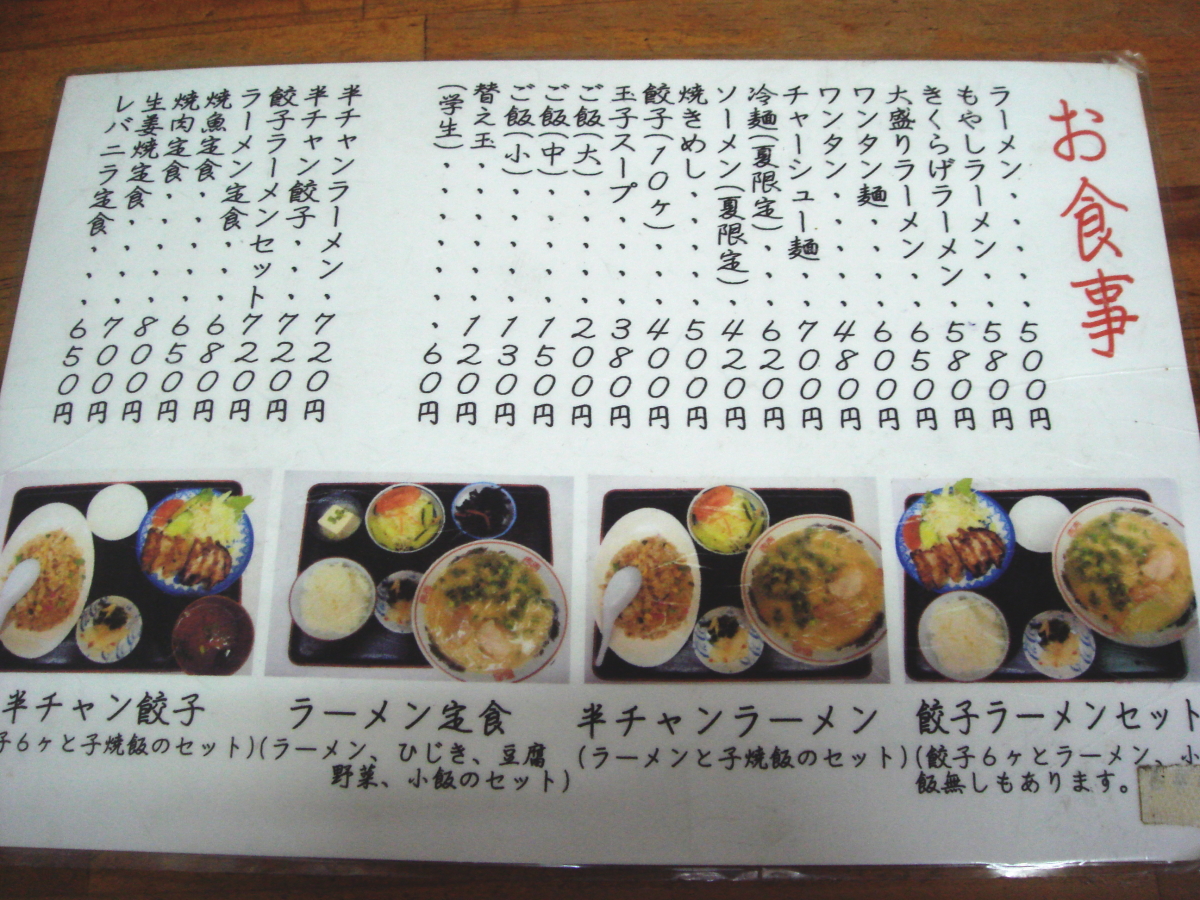 お食事
ラーメン・・・・・500円
もやしラーメン・・580円
きくらげラーメン・580円
大盛りラーメン・・650円
ワンタン麺・・・・600円
ワンタン・・・・・480円
チャーシュー麺・・700円
冷麺(夏限定)・・・620円
ソーメン(夏限定)・420円
焼きめし・・・・・500円
餃子(10ヶ)・・・400円
玉子スープ・・・・380円
ご飯(大)・・・・・200円
ご飯(中)・・・・・150円
ご飯(小)・・・・・130円
替え玉・・・・・・120円
(学生)・・・・・・・60円
半チャンラーメン・720円
半チャン餃子・・・720円
餃子ラーメンセット720円
ラーメン定食・・・680円
焼魚定食・・・・・650円
焼肉定食・・・・・800円
生姜焼定食・・・・700円
レバニラ定食・・・650円
半チャン餃子
子6ヶと子焼飯のセット)
ラーメン定食
(ラーメン、ひじき、豆腐
野菜、小飯のセット)
半チャンラーメン
(ラーメンと子焼飯のセット)
餃子ラーメンセット
(餃子6ヶとラーメン、小
飯無しもあります。